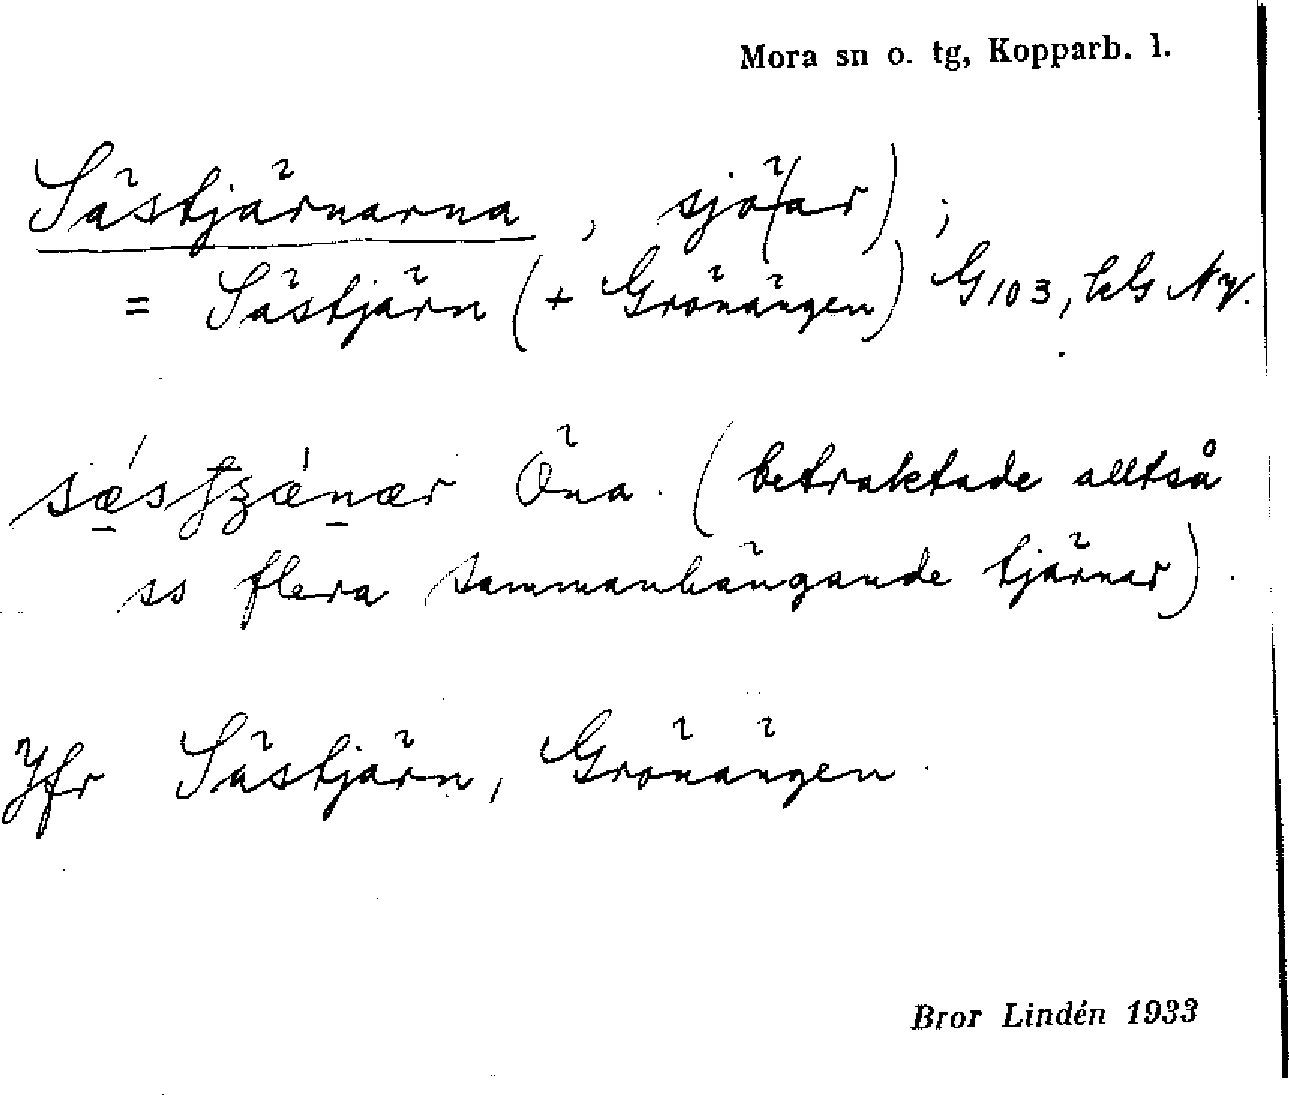 Mora sn o. tg, Kopparb. l.
Sästjärnarna, sjö(ar);
= Sästjärn (+ Grönängen) G103, hG NV.
Öna. (betraktade alltså
ss flera sammanhängande tjärnar).
Jfr Sästjärn, Grönängen.
Bror Lindén 1933